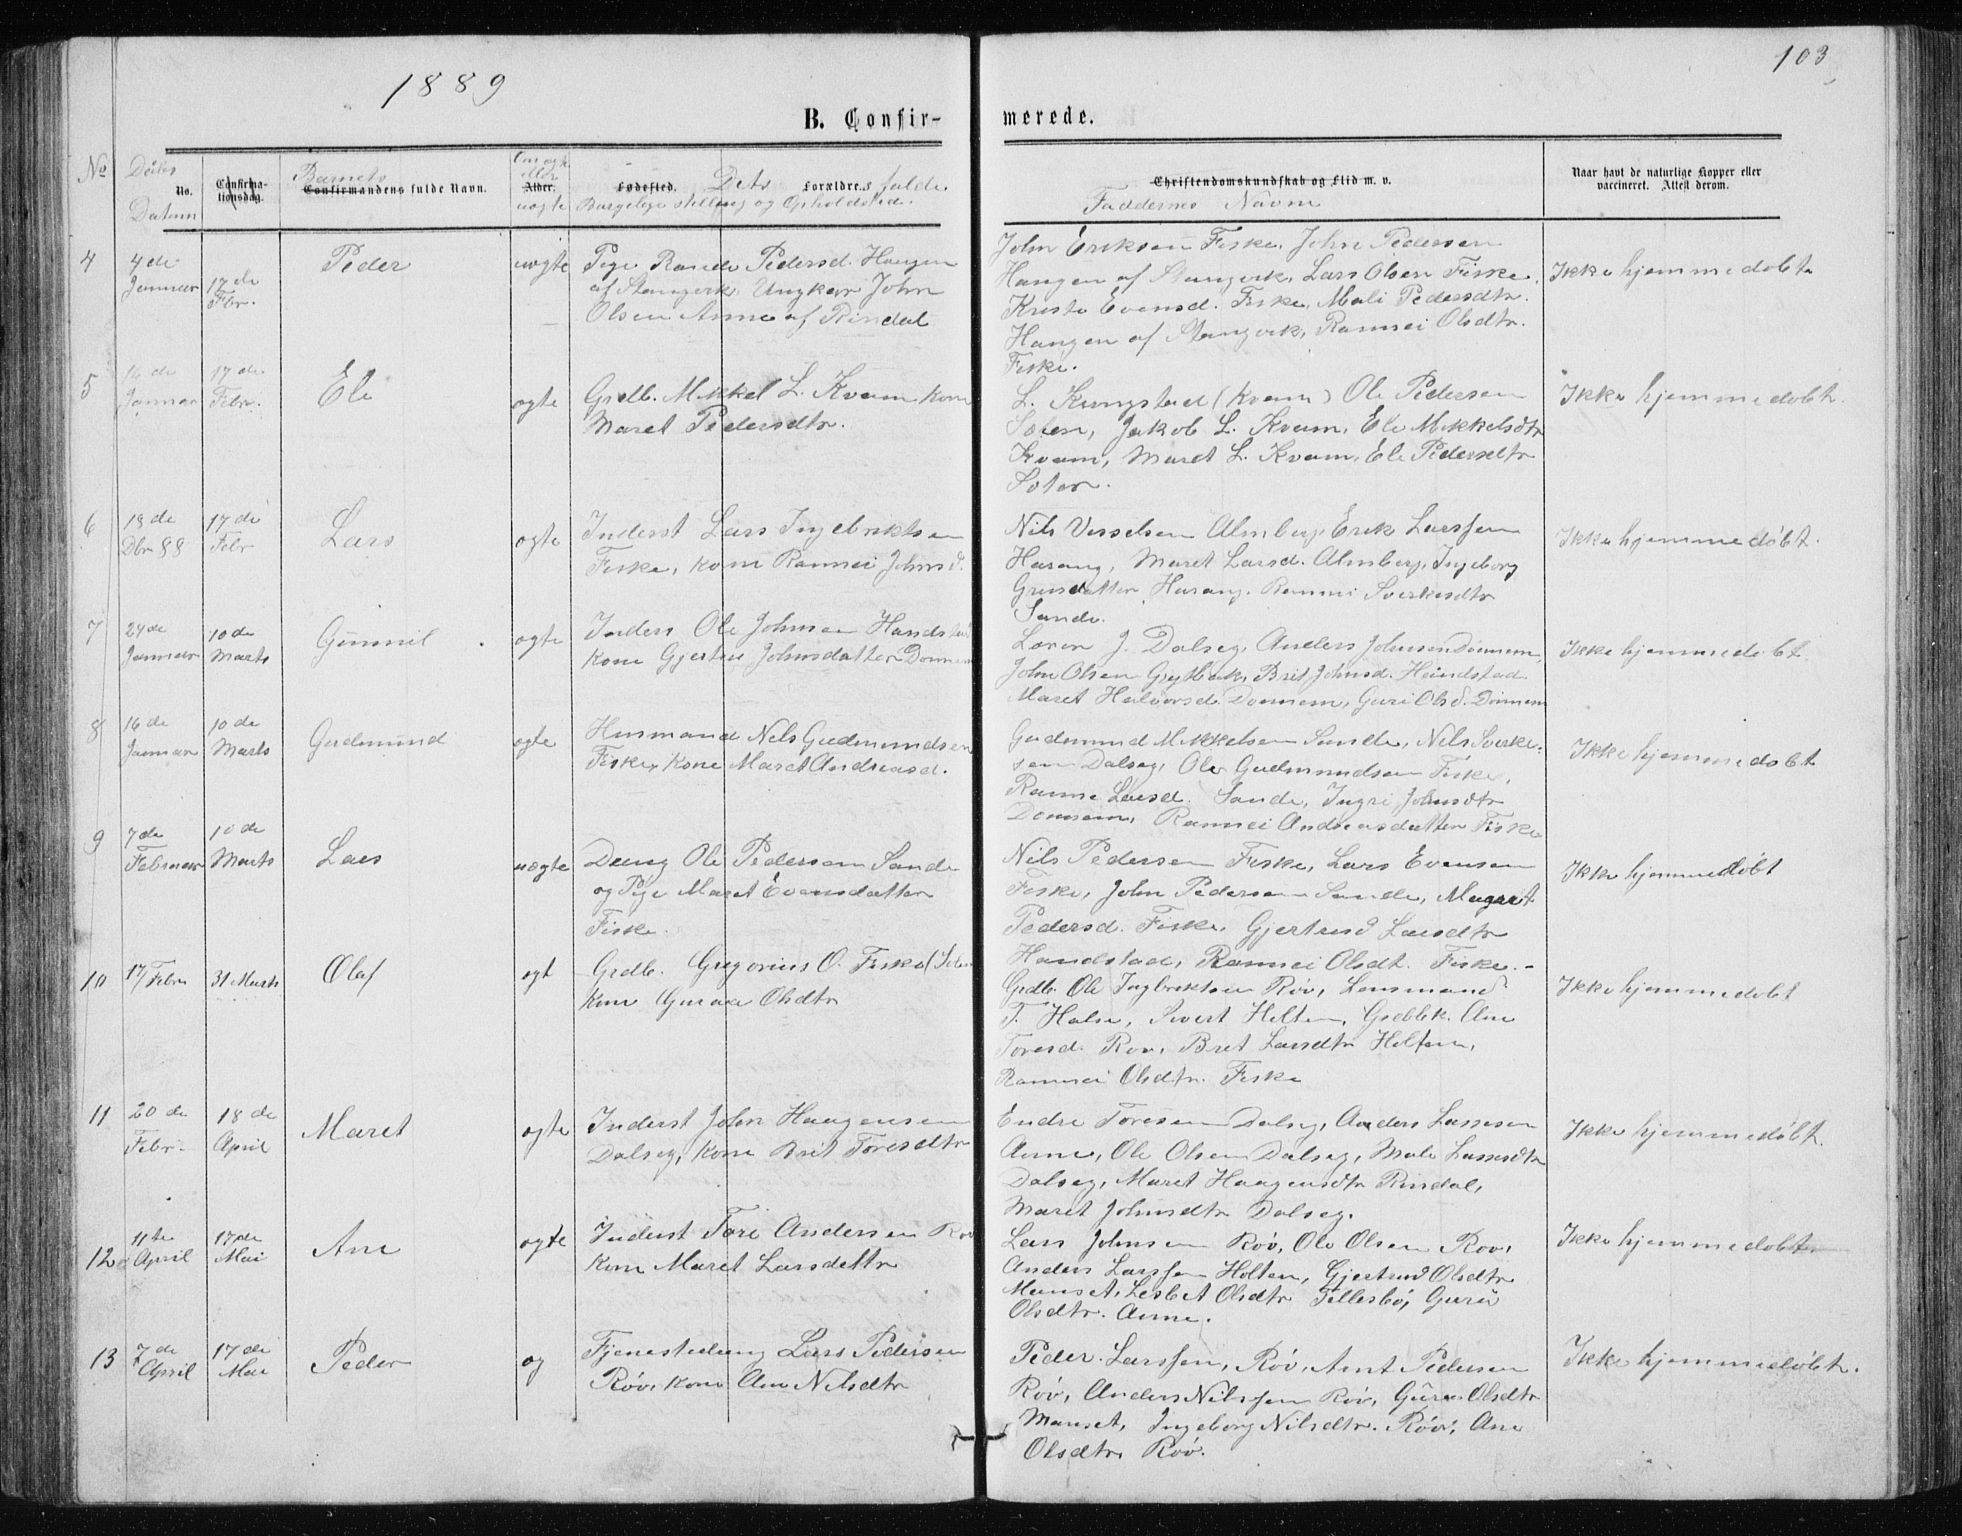 1889
103
B. Confir-
merede.
No
Døbs
Datum
No.
Confirma-
tionsdag.
Barnets
Confirmandens fulde Navn.
Om ægte
eller
Alder.
uægte
Fødested. Dets Forældres fulde
Borgelige stilling og Opholdsted.
Christendomskundskab og Flid m. v.
Faddernes Navne
Naar havt de naturlige Kopper eller
vaccineret. Attest derom.
4
4de
Januar
17de
Febr.
Peder
uægte
Pige Rande Pedersd. Haugen
af Stangvik, Ungkar John
Olsen Anne af Rindal
John Eriksen Fiske, John Pedersen
Haugen af Stangvik, Lars Olsen Fiske
Kristi Evensd. Fiske, Mali Pedersdtr.
Haugen af Stangvik, Rannei Olsdtr.
Fiske.
Ikke hjemmedøbt
5
16de
Januar
17de
Febr.
Eli
ogte
Grdb. Mikkel L. Kvam kone
Maret Pedersdtr.
L. Kungstad (Kvam) Ole Pedersen
Soten, Jakob L. Kvam, Eli Mikkelsdtr
Kvam, Maret L. Kvam, Eli Pedersdtr
Soten.
Ikke hjemmedobt.
6
18de
Dbr 88
17de
Febr
Lars
ogte
Inderst Lars Ingebriktsen
Fiske, kone Rannei Johnsd.
Nils Vesselsen Almberg, Erik Larssen
Harang, Maret Larsd. Almberg, Ingeborg
Grunsdatter Harang, Rannei Sverkesdtr
Sande.
Ikke hjemmedøbt.
7
24de
Januar
10de
Marts
Gunnil
ogte
Inders Ole Johnsen Handstad
kone Gjertru Johnsdatter Donnem
Loren J. Dalseg, Anders Johnsen Donnem,
John Olsen Grytbak, Brit Johnsd. Heindstad
Maret Halvorsd. Donnem, Guri Olsd. Donnem
Ikke hjemmedobt
8
16de
Januar
10de
Marts
Gudmund
ogte
Husmand Nels Gudmundsen
Fiske, kone Maret Andreasd.
Gudmund Mikkelsen Sande, Nels Sverke-
sen Dalseg, Ole Gudmundsen Fiske,
Ranne Larsd. Sande, Ingri Johnsdtr
Donnem, Rannei Andreasdatter Fiske
Ikke hjemmedobt
9
7de
Februar
10de
Marts
Lars
uægte
Dreng Ole Pedersen Sande
og Pige Maret Evensdatter
Fiske.
Nils Pedersen Fiske, Lars Evensen
Fiske, John Pedersen Sande, Magrit
Pedersd. Fiske, Gjertrud Larsdtr
Handstad, Rannei Olsdt. Fiske.-
Ikke hjemmedøbt
10
17 Febr
31 Marts
Olaf
ogt
Grdb. Gregorius O. Fiske (Soten
kone Guraa Olsdtr
Grdb. Ole Ingbriktsen Røv, Lensmand
T. Halse, Sivert Holten, Grdbk. Ane
Toresd. Rov, Bret Larsdtr Holten,
Rannei Olsdtr. Fiske
Ikke hjemmedobt
11
20de
Febr.
18de
April
Maret
ogte
Inderst John Haagensen
Dalseg, kone Brit Toresdtr
Endre Toresen Dalseg, Anders Larsen
Anne, Ole Olsen Dalseg, Mali Larsdtr
Dalseg, Maret Haagensdtr Rindal,
Maret Johnsdtr Dalseg.
Ikke hjemmedøbt.
12
11te
April
17de
Mai
Ane
ogte
Inderst Tore Andersen Rov
kone Maret Larsdattr
Lars Johnsen Røv, Ole Olsen Rov,
Anders Larssen Holten, Gjertrud Olsdtr
Manset, Lesbet Olsdtr Tellesbø, Guru
Olsdtr. Anne.
Ikke hjemmedobt
13
7de
April
17de
Mai
Peder
og
Tjenestedreng Lars Pedersen
Røv, kone Ane Nilsdtr
Peder Larssen, Røv, Arnt Pedersen
Røv, Anders Nilssen Røv, Gura Olsdtr
Manset, Ingeborg Nilsdtr. Røv, Ane
Olsdtr. Røv.
Ikke hjemmedøbt.